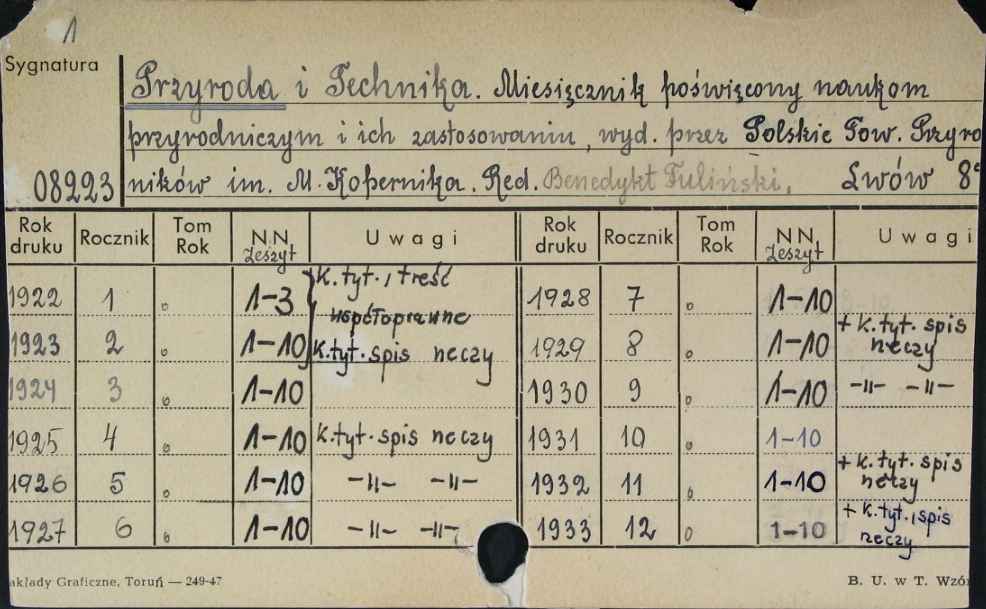 1
Sygnatura
08223
Przyroda i Technika. Miesięcznik poświęcony naukom
przyrodniczym i ich zastosowaniu, wyd. przez Polskie Tow. Przyro
ników im. M. Kopernika. Red. Benedykt Fuliński. Lwów 8°
Rok druku Rocznik Tom Rok NN. Zeszyt Uwagi Rok druku Rocznik Tom Rok NN. Zeszyt Uwagi
1922 1 1-3 K.tyt., treść
współoprawne
1923 2 1-10 K.tyt. spis rzeczy
1924 3 1-10
1925 4 1-10 K.tyt. spis rzeczy
1926 5 1-10 -〃- -〃-
1927 6 1-10 -〃- -〃-
1928 7 1-10
1929 8 1-10 + K.tyt. spis
rzeczy
1930 9 1-10 -〃- -〃-
1931 10 1-10
1932 11 1-10 + K.tyt. spis
rzeczy
1933 12 1-10 + K.tyt., spis
rzeczy
akłady Graficzne, Toruń — 249-47
B. U. w T. Wzór